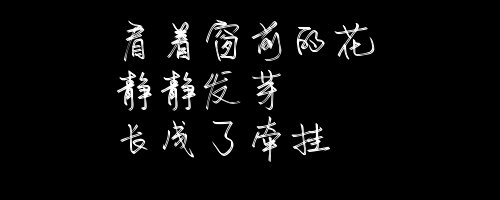 看着窗前的花
静静发芽
长成了牵挂